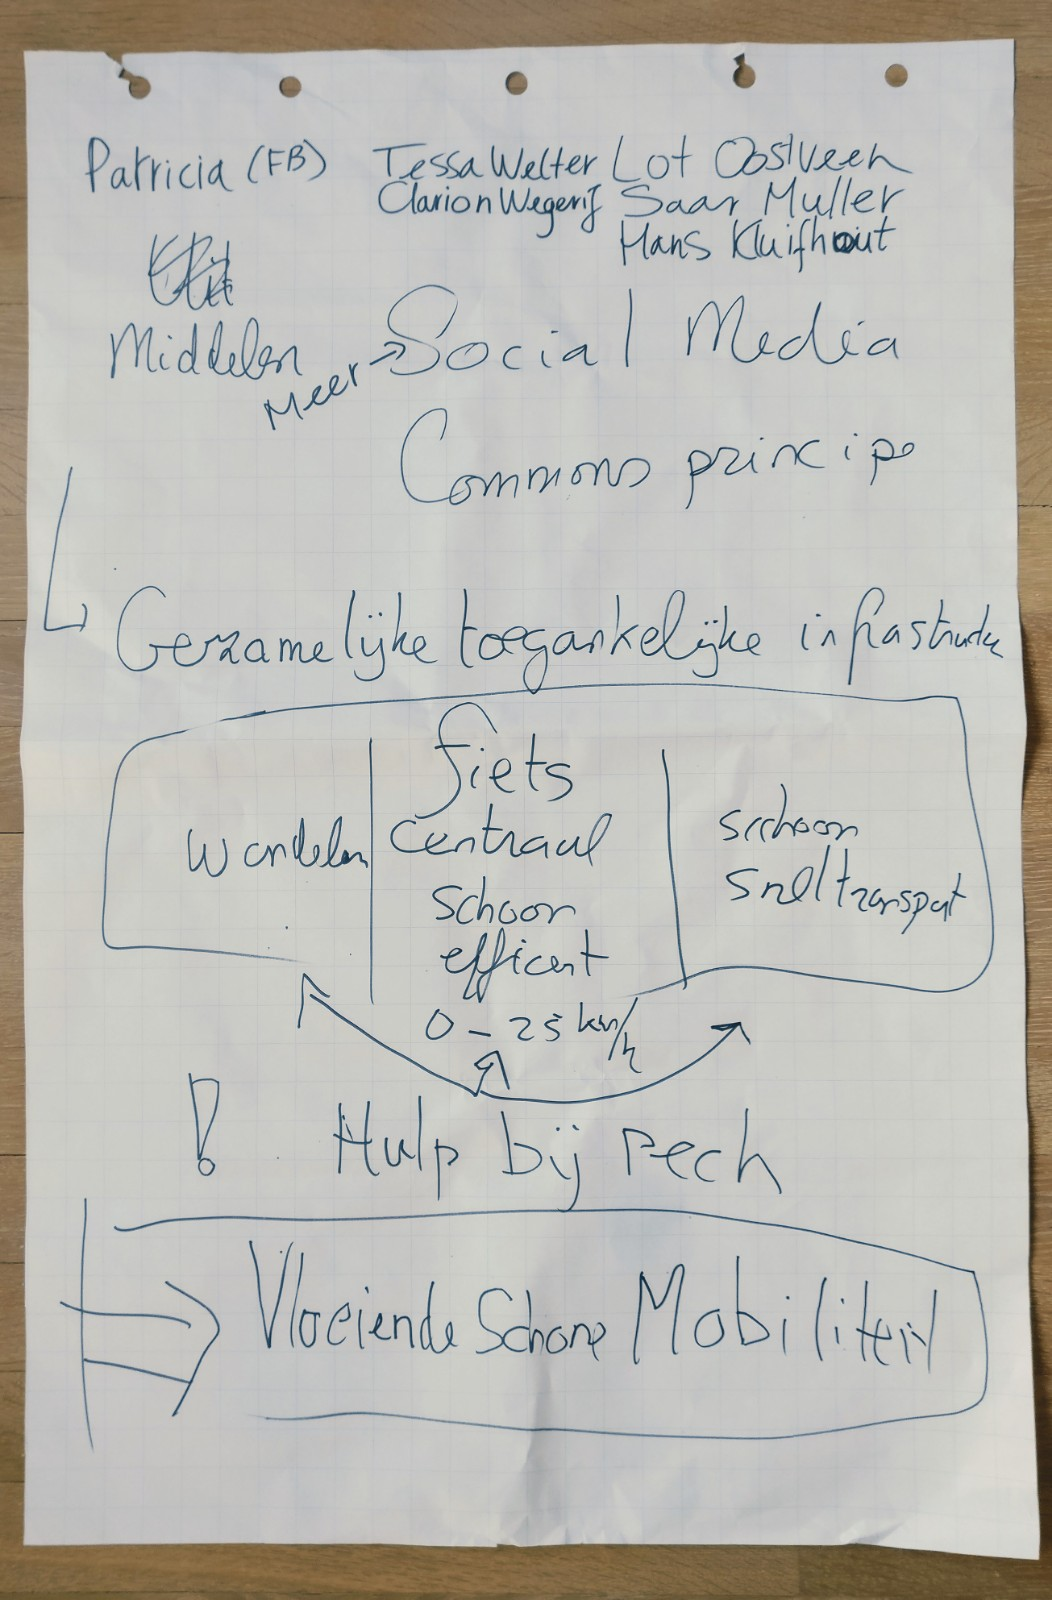 Patricia (FB) Tessa Welter Lot Oostveen
Clarion Wegerif Saar Muller
Hans Kluifhout
Middelen Meer → Social Media
Commons principe
Gezamelijke toegankelijke infrastructu
fiets
wandelen centraal schoon
schoon sneltransport
efficent
0 - 25 km/h
! Hulp bij Pech
Vloeiende Schone Mobiliteit